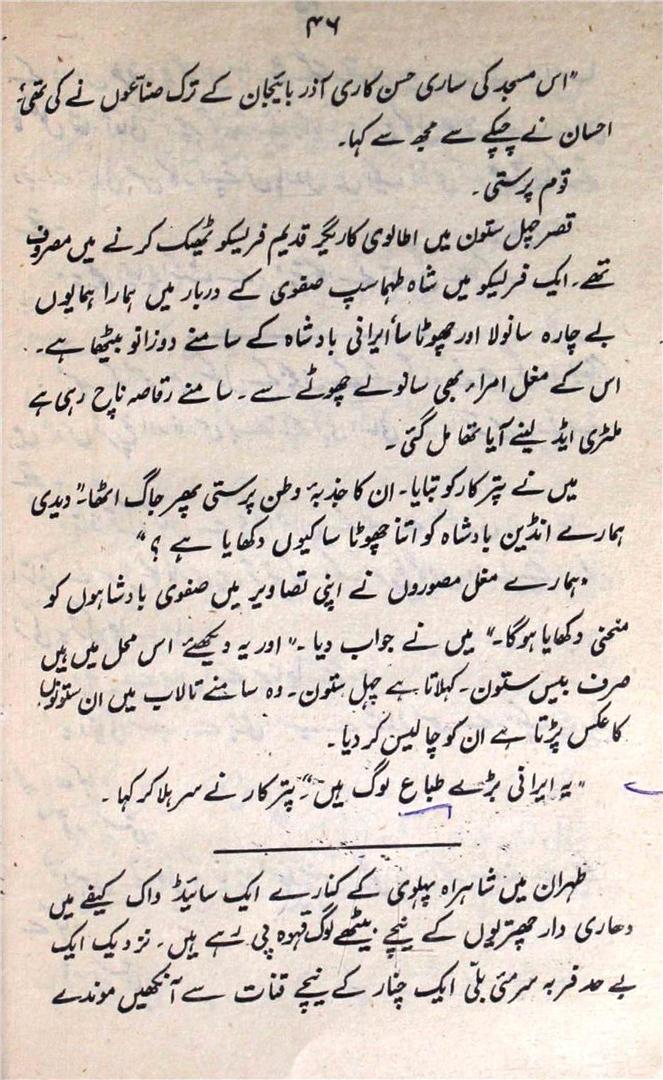 ۴۶
"اس مسجد کی ساری حسن کاری آذر بائیجان کے ترک صناعوں نے کی تھی"
احسان نے چپکے سے مجھ سے کہا۔
قوم پرستی۔
قصر چہل ستون میں اطالوی کاریگر قدیم فریسکو ٹھیک کرنے میں مصروف
تھے۔ ایک فریسکو میں شاہ طہماسپ صفوی کے دربار میں ہمارا ہمایوں
بے چارہ سانولا اور چھوٹا سا ایرانی بادشاہ کے سامنے دوزانو بیٹھا ہے۔
اس کے مغل امراء بھی سانولے چھوٹے سے۔ سامنے رقاصہ ناچ رہی ہے
ملٹری ایڈ لینے آیا تھا مل گئی۔
میں نے پتر کار کو بتایا۔ ان کا جذبۂ وطن پرستی پھر جاگ اٹھا۔ "دیدی
ہمارے انڈین بادشاہ کو اتنا چھوٹا سا کیوں دکھایا ہے ؟"
"ہمارے مغل مصوروں نے اپنی تصاویر میں صفوی بادشاہوں کو
منحنی دکھایا ہوگا۔" میں نے جواب دیا۔ "اور یہ دیکھئے اس محل میں ہیں
صرف بیس ستون۔ کہلاتا ہے چہل ستون۔ وہ سامنے تالاب میں ان ستونوں
کا عکس پڑتا ہے ان کو چالیس کر دیا۔
"یہ ایرانی بڑے طباع لوگ ہیں"۔ پتر کار نے سر ہلا کر کہا۔
طہران میں شاہراہ پہلوی کے کنارے ایک سائیڈ واک کیفے میں
دھاری دار چھتریوں کے نیچے بیٹھے لوگ قہوہ پی رہے ہیں۔ نزدیک ایک
بے حد فربہ سرمئی بلّی ایک چنار کے نیچے قنات سے آنکھیں موندے